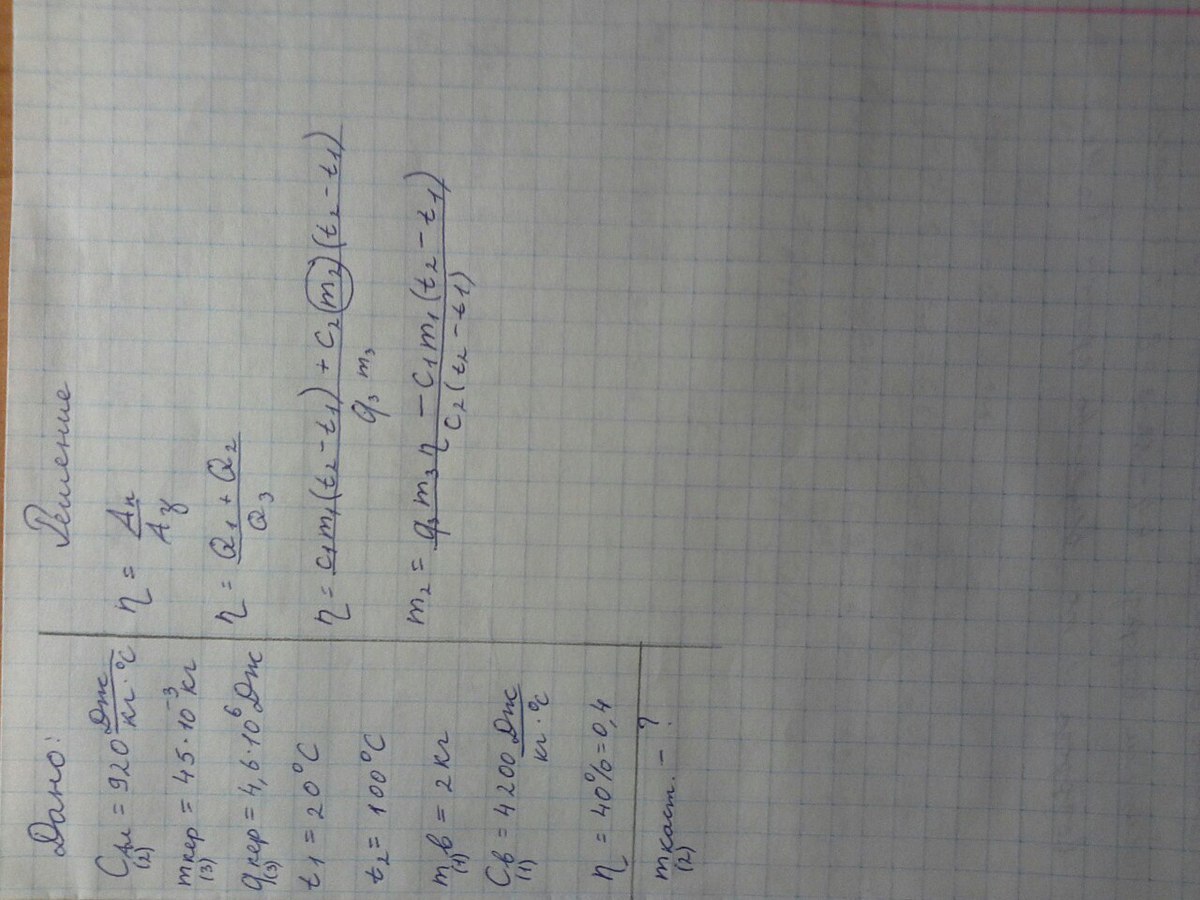 Дано:
C ал = 920 Дж/кг·°C
(2)
m кер = 45·10⁻³ кг
(3)
q кер = 4,6·10⁶ Дж
(3)
t₁ = 20°C
t₂ = 100°C
m в = 2 кг
(1)
C в = 4200 Дж/кг·°C
(1)
η = 40% = 0,4
m каст. – ?
(2)
Решение
η = Aп/Aз
η = (Q₁ + Q₂)/Q₃
η = (c₁m₁(t₂ – t₁) + c₂m₂(t₂ – t₁))/(q₃m₃)
m₂ = (q₃m₃η – c₁m₁(t₂ – t₁))/(c₂(t₂ – t₁))